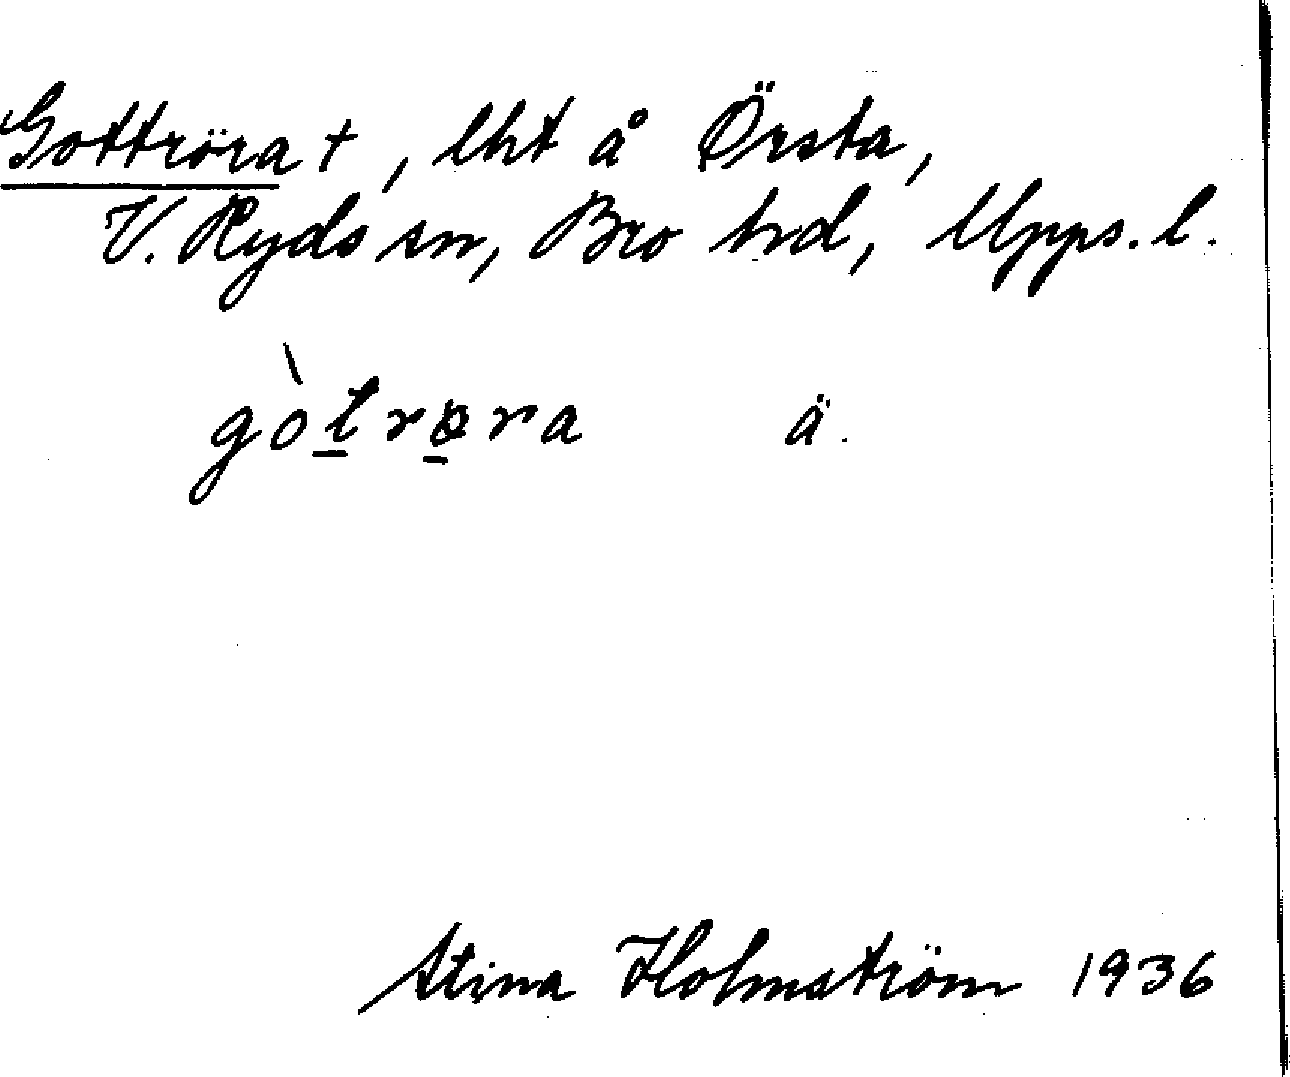 Gottröra †, lht å Örsta,
V. Ryds sn, Bro hrd, Upps. l.
gòt̠rø̠ra ä.
Stina Holmström 1936